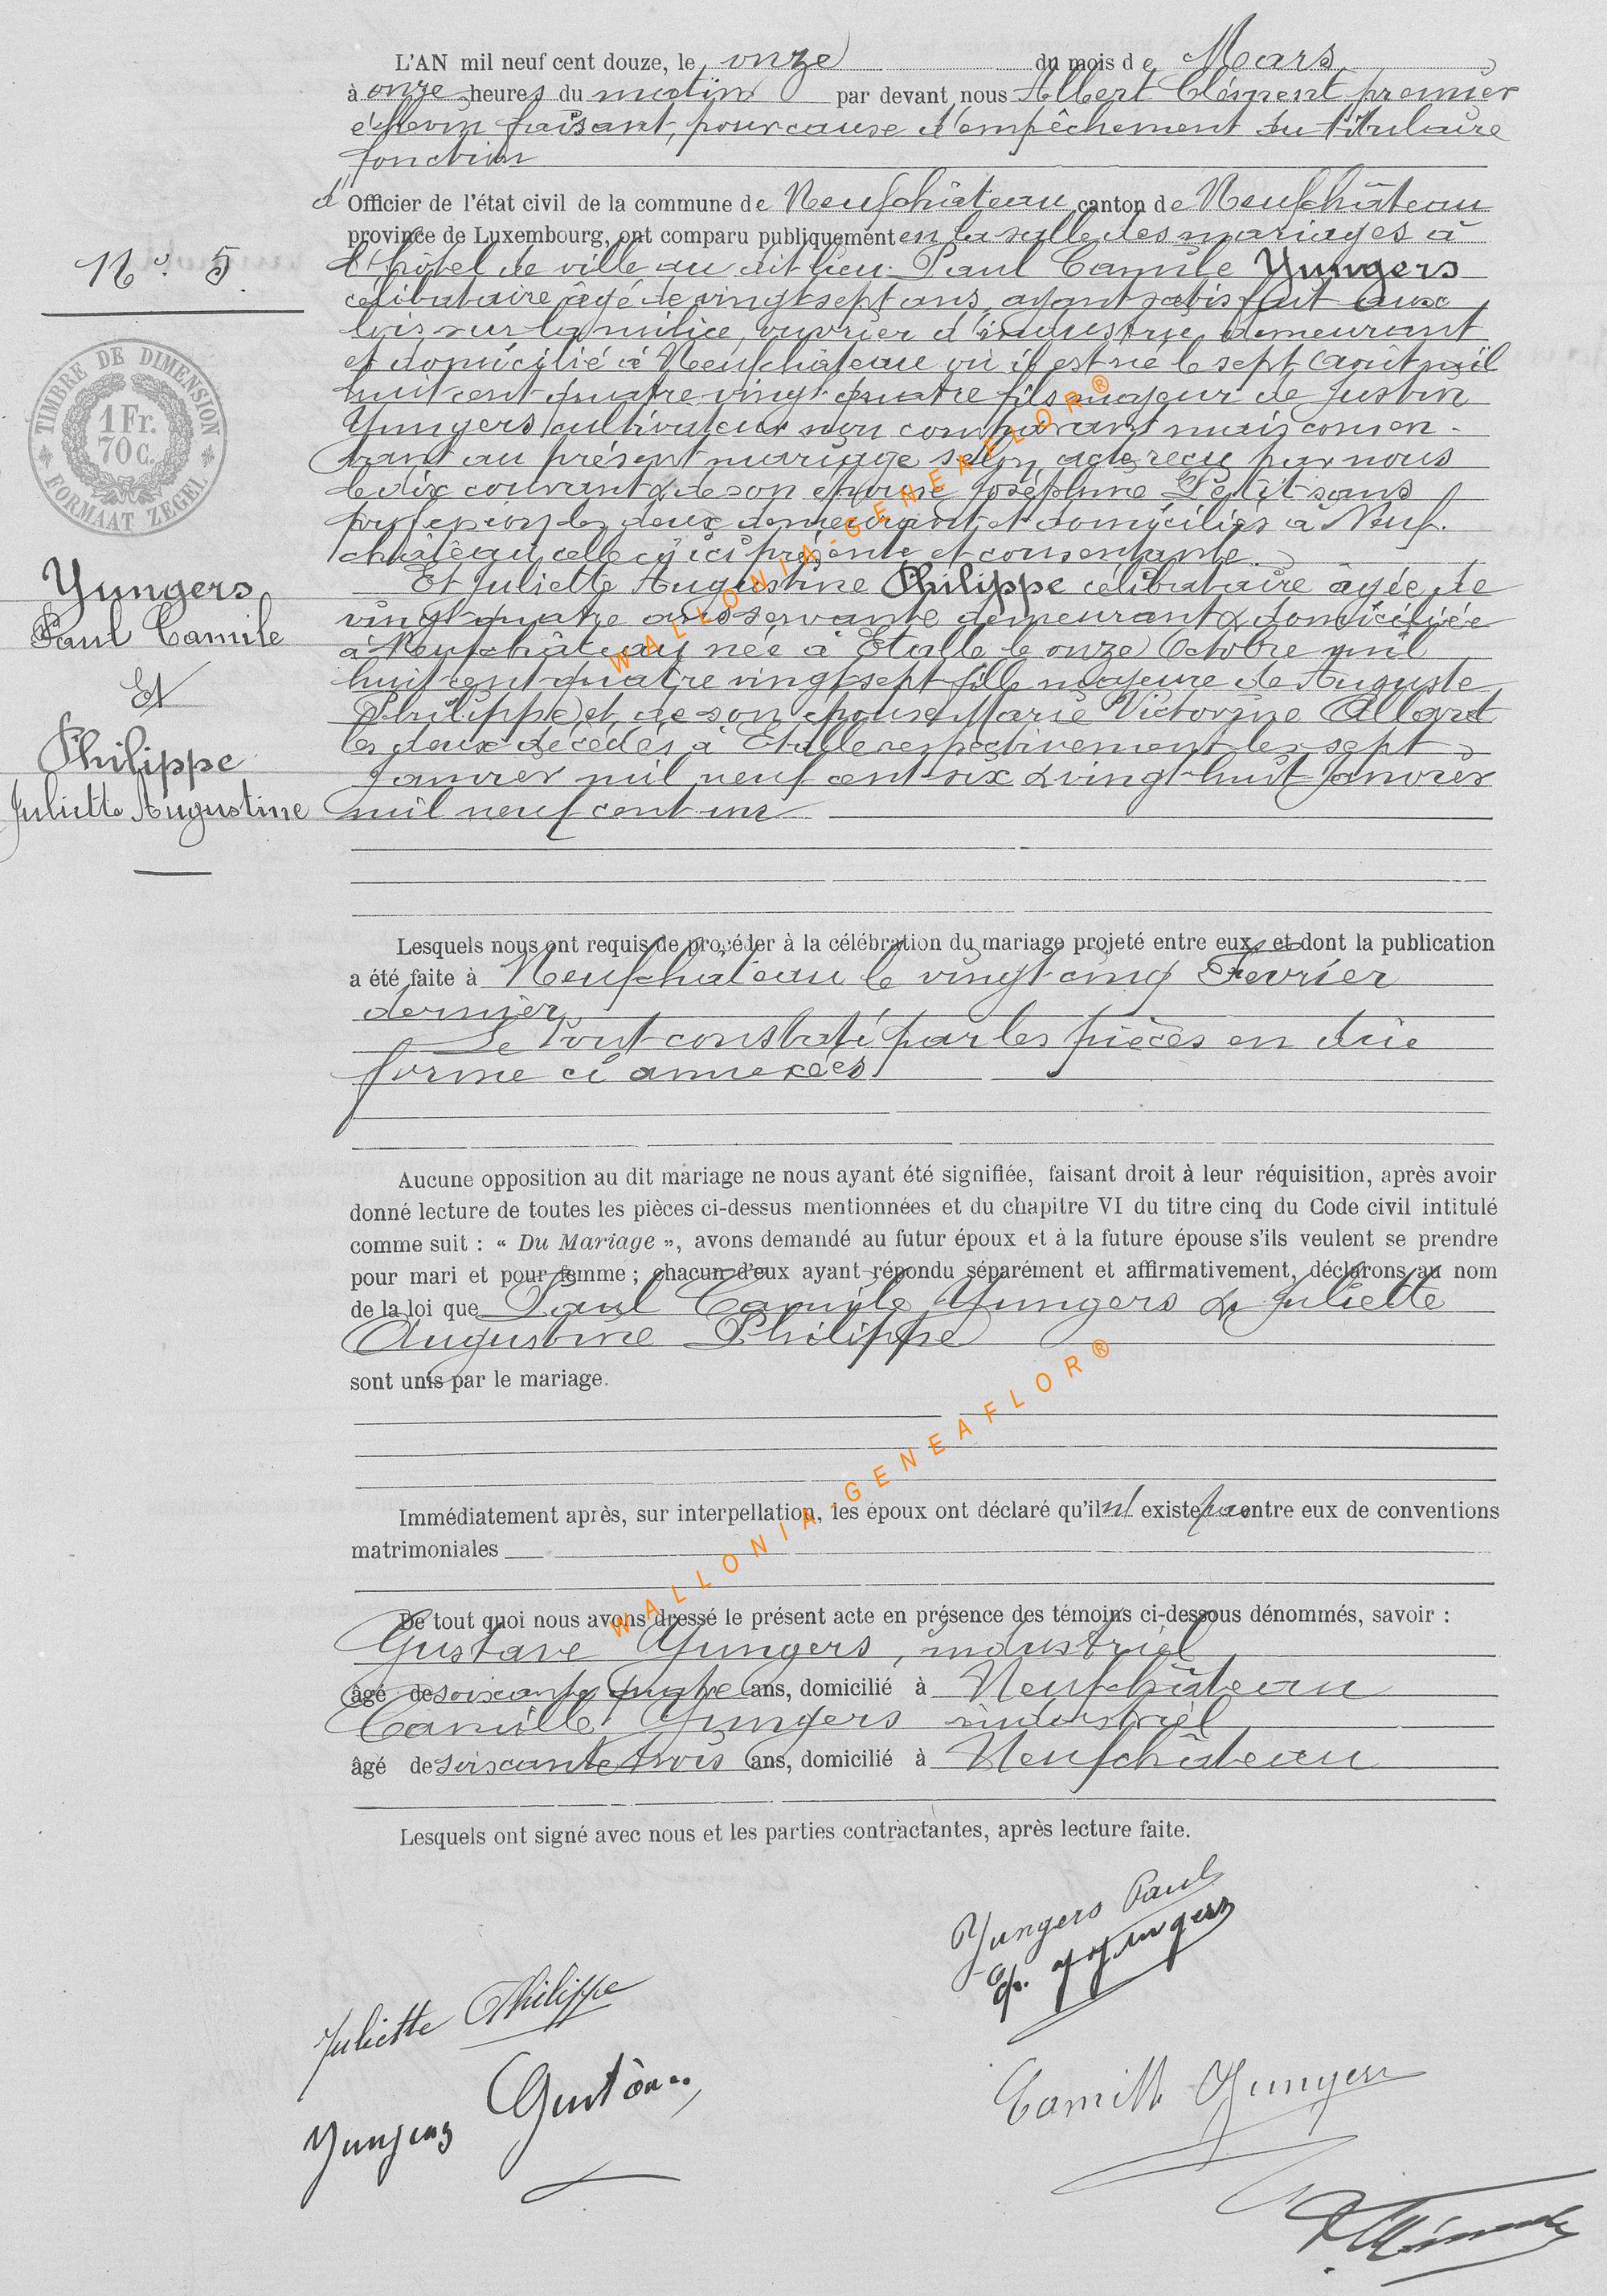 L'AN mil neuf cent douze, le onze du mois de Mars
à onze heures du matin par devant nous Albert Clément premier
échevin faisant, pour cause d'empêchement du titulaire
fonction
d' Officier de l'état civil de la commune de Neufchâteau canton de Neufchâteau
province de Luxembourg, ont comparu publiquement en la salle des mariages à
l'hôtel de ville au dit lieu. Paul Camile Yungers
célibataire âgé de vingt-sept ans, ayant satisfait aux
lois sur la milice, ouvrier d'industrie demeurant
et domicilié à Neufchâteau où il est né le sept Août mil
huit cent quatre vingt-quatre fils majeur de Justin
Yungers cultivateur non comparant mais consen-
tant au présent mariage selon acte reçu par nous
le dix courant & de son épouse Joséphine Petit sans
profession les deux demeurant et domiciliés à Neuf-
château celle ci ici présente et consentante
Et Juliette Augustine Philippe célibataire âgée de
vingt quatre ans servante demeurant & domiciliée
à Neufchâteau née à Etalle le onze Octobre mil
huit cent quatre vingt sept fille majeure de Auguste
Philippe et de son épouse Marie Victorine Allard
les deux décédés à Etalle respectivement les sept
Janvier mil neuf cent six & vingt-huit Janvier
mil neuf cent un
N° 5
TIMBRE DE DIMENSION
1 Fr.
70 c.
FORMAAT ZEGEL
Yungers
Paul Camile
Et
Philippe
Juliette Augustine
Lesquels nous ont requis de procéder à la célébration du mariage projeté entre eux et dont la publication
a été faite à Neufchâteau le vingt-cinq Fevrier
dernier
Le tout constaté par les pièces en due
forme ci annexées
Aucune opposition au dit mariage ne nous ayant été signifiée, faisant droit à leur réquisition, après avoir
donné lecture de toutes les pièces ci-dessus mentionnées et du chapitre VI du titre cinq du Code civil intitulé
comme suit : « Du Mariage », avons demandé au futur époux et à la future épouse s'ils veulent se prendre
pour mari et pour femme ; chacun d'eux ayant répondu séparément et affirmativement, déclarons au nom
de la loi que Paul Camile Yungers & Juliette
Augustine Philippe
sont unis par le mariage.
Immédiatement après, sur interpellation, les époux ont déclaré qu'il n' existe pas entre eux de conventions
matrimoniales
De tout quoi nous avons dressé le présent acte en présence des témoins ci-dessous dénommés, savoir :
Gustave Yungers, industriel
âgé de soixante quatre ans, domicilié à Neufchâteau
Camille Yungers industriel
âgé de soixante trois ans, domicilié à Neufchâteau
Lesquels ont signé avec nous et les parties contractantes, après lecture faite.
Yungers Paul
Yungers
Juliette Philippe
Yungers
Camille Yungers
WALLONIA-GENEAFLOR®
WALLONIA-GENEAFLOR®